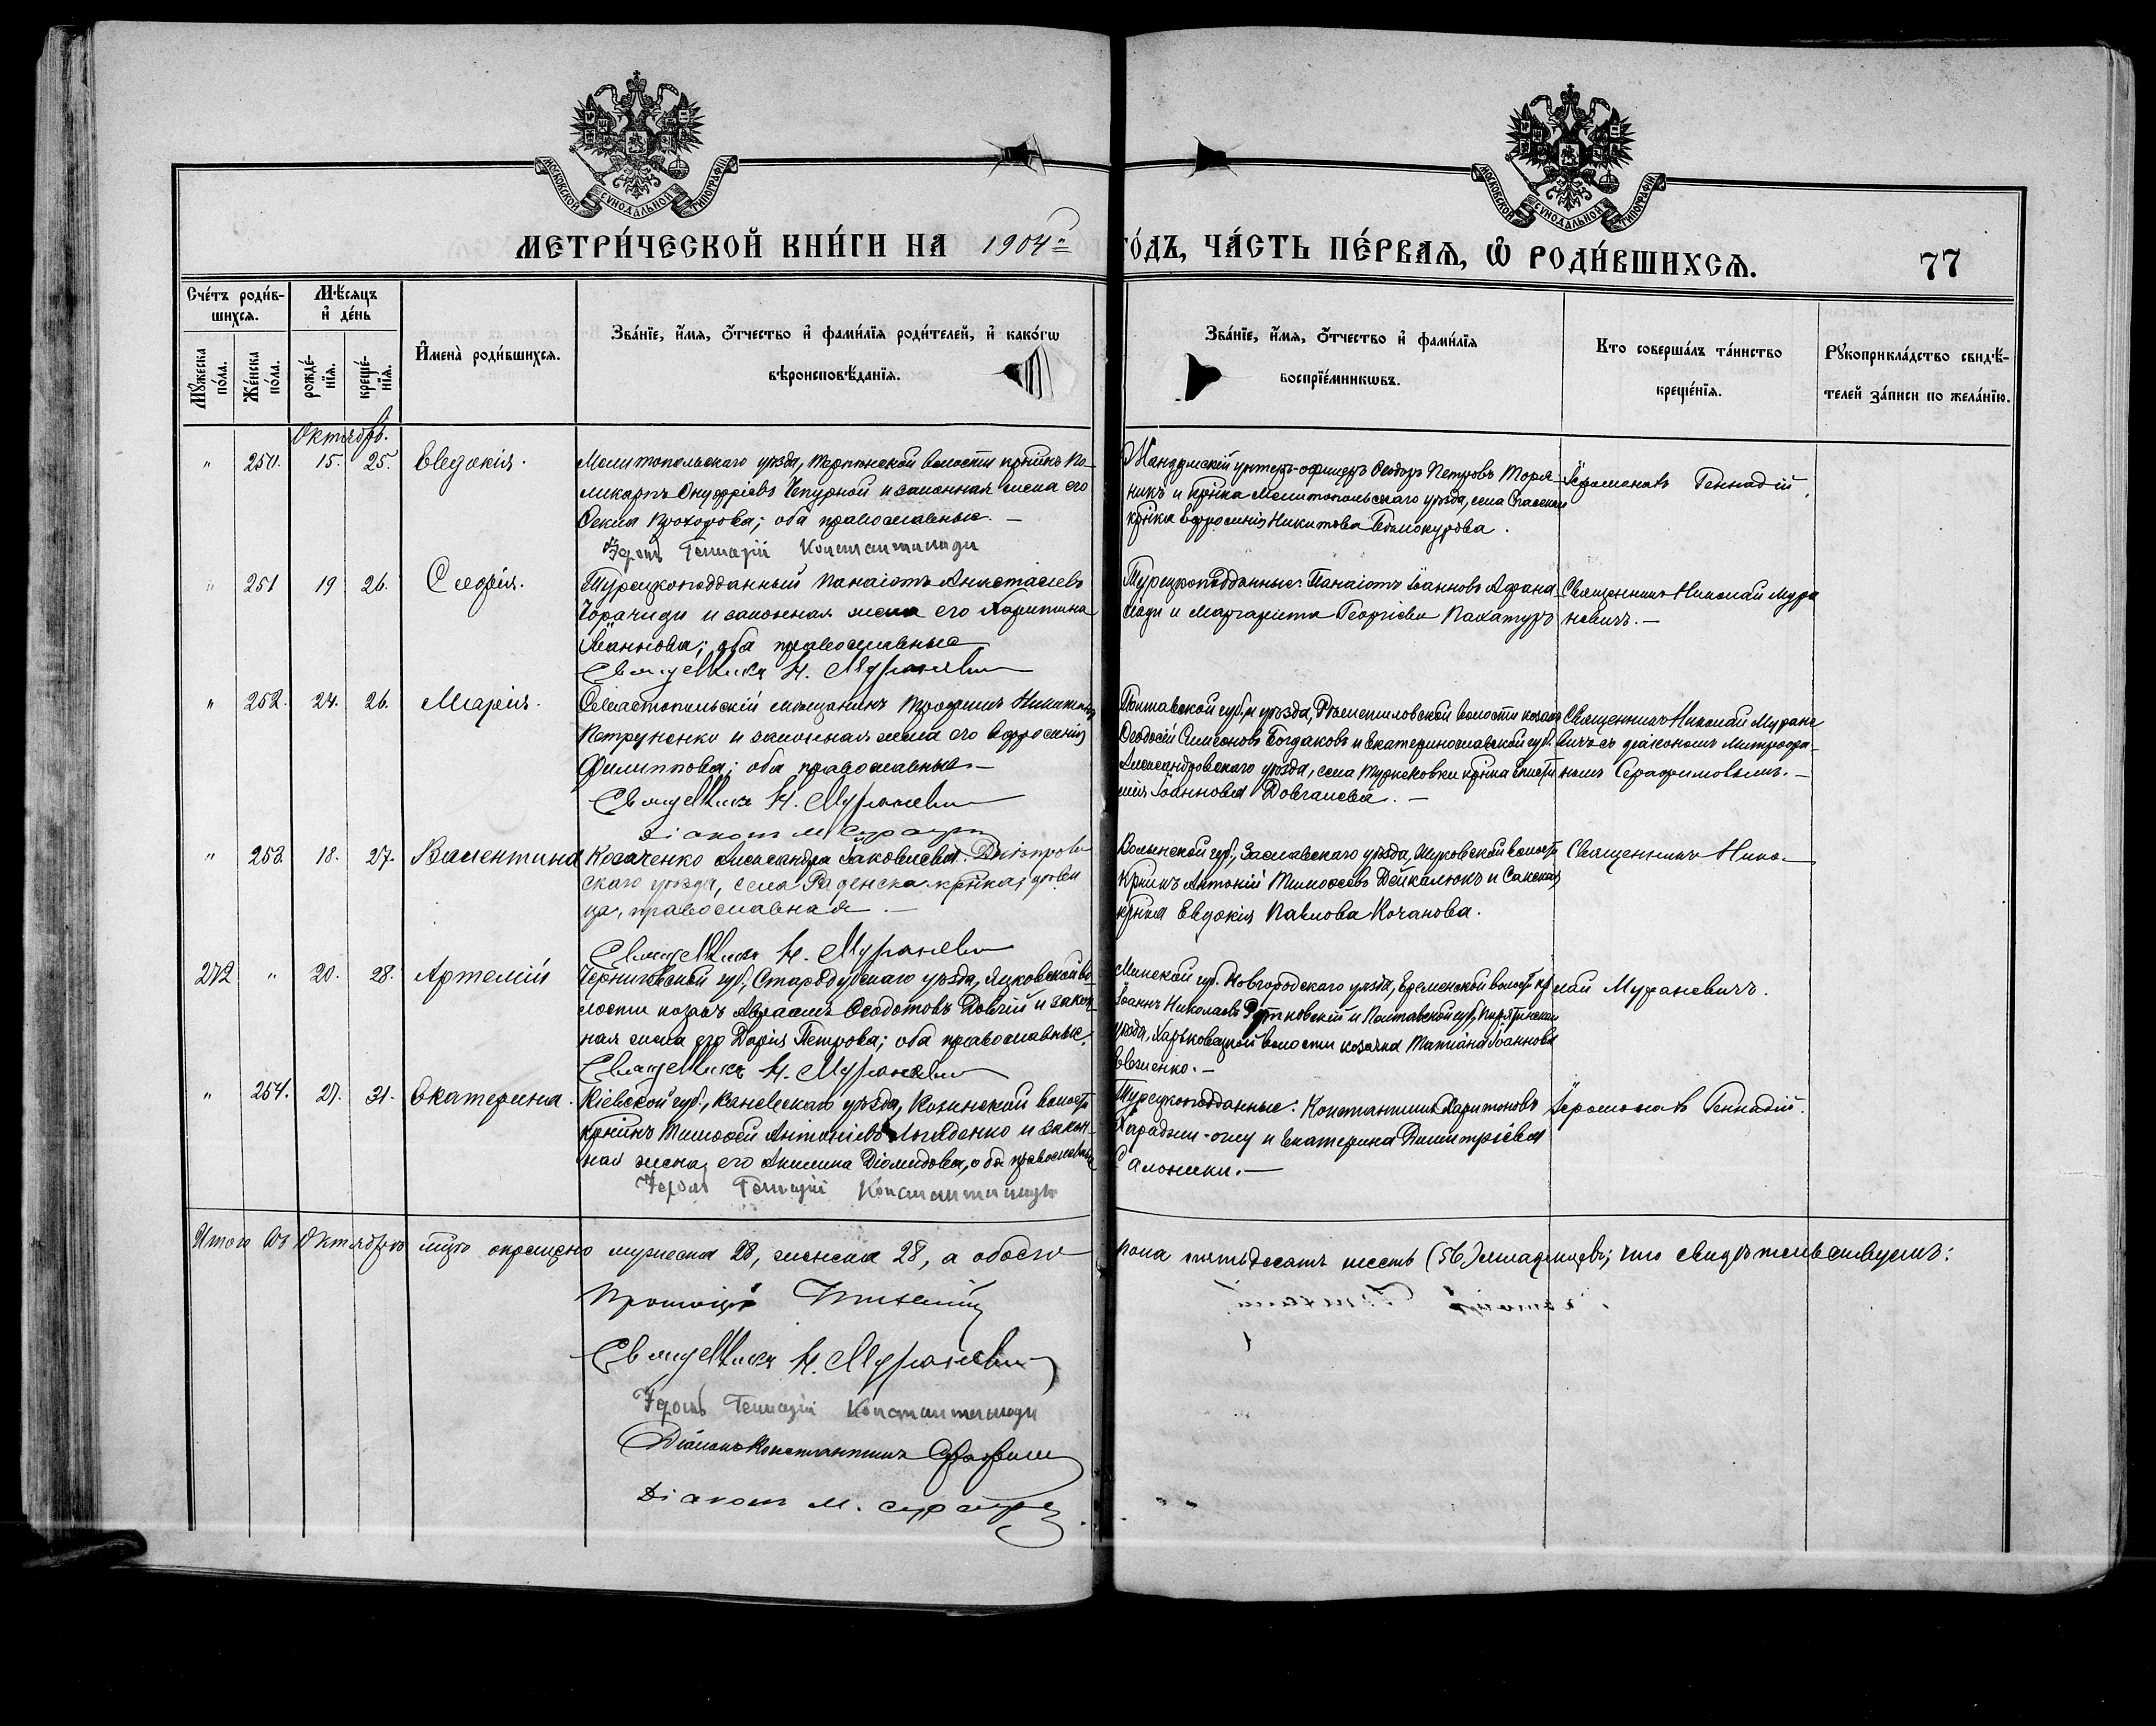 МОСКОВСКОЙ СѴНОДАЛЬНОЙ ТИПОГРАФІИ
МОСКОВСКОЙ СѴНОДАЛЬНОЙ ТИПОГРАФІИ
МЕТРИ́ЧЕСКОЙ КНИ́ГИ НА 1904
ГО́ДЪ, ЧА́СТЬ ПЕ́РВАѦ, Ѡ҆ РОДИ́ВШИХСѦ.
77
Сче́тъ роди́в-
шихсѧ.
Мѣ́сѧцъ
и҆ де́нь
Мꙋ́жеска по́ла.
Же́нска по́ла.
рожде́-нїѧ.
креще́-нїѧ.
И҆мена̀ роди́вшихсѧ.
Зва́нїе, и҆́мѧ, ѻ҆́тчество и҆ фами́лїѧ роди́телей, и҆ како́гѡ
вѣроисповѣ́данїѧ.
Зва́нїе, и҆́мѧ, ѻ҆́тчество и҆ фами́лїѧ
воспрїе́мникѡвъ.
Кто соверша́лъ та́инство
креще́нїѧ.
Рꙋкоприкла́дство свидѣ́-
телей за́писи по жела́нїю.
Октябрь.
" 250. 15. 25. Евдокія.
Мелитопольскаго уѣзда, Терпѣнской волости кр-нинъ По-
ликарпъ Онуфріевъ Чепурной и законная жена его
Фекла Прохорова; оба православные. —
Іером Геннадій Константиниди
Жандармскій унтеръ-офицеръ Ѳеодоръ Петровъ
никъ и кр-нка Мелитопольскаго уѣзда, села
кр-нка Ефросинія Никитова Бѣлокурова.
Іеромонахъ Геннадій.
" 251 19 26. Софія.
Турецкоподданный Панаіотъ Анастасіевъ
и законная жена его Харитина
Іоаннова; оба православные
Священникъ Н. Мураневич
Турецкоподданные: Панаіотъ Іоанновъ Афана-
сіади и Маргарита Георгіева
Священникъ Николай Мура
невичъ. —
" 252. 24. 26. Марія.
Севастопольскій мѣщанинъ Трофимъ
Петруненко и законная жена его Ефросинія
Филиппова; оба православные. —
Священникъ Н. Мураневич
Діаконъ М.
Полтавской губ. и уѣзда, волости козакъ
Ѳеодосій Симеоновъ Богдаковъ и Екатеринославской губ.
Александровскаго уѣзда, села кр-нка
Іоаннова Довгалева. —
Священникъ Николай Муране
вичъ съ діакономъ Митрофа-
номъ Серафимовымъ. —
" 253. 18. 27. Валентина
Козаченко Александра Іаковлева. Днѣпров
скаго уѣзда, села Раденска кр-нка, дѣви
ца, православная. —
Священникъ Н. Мураневич
Волынской губ., Заславскаго уѣзда, волости
кр-нинъ Антоній Тимоѳеевъ Дейкалюкъ и
кр-нка Евдокія Павлова Кочанова.
Священникъ Нико-
272 " 20. 28. Артемій
Черниговской губ., Стародубскаго уѣзда, во
лости козакъ Авраамъ Ѳеодотовъ Довгій и закон
ная жена его Дарія Петрова; оба православные.
Священникъ Н. Мураневич
Минской губ. Новгородскаго уѣзда, волости кр
Іоаннъ Николаевъ и Полтавской губ., Пирятинскаго
уѣзда, Харьковецкой волости козачка Татіана Іоаннова
лай Мураневичъ.
" 254. 27. 31. Екатерина.
Кіевской губ., Каневскаго уѣзда, Козинской волости
кр-нинъ Тимоѳей Антоніевъ и закон-
ная жена его Акилина Діомидова, оба православные
Іером Геннадій Константиниди
Турецкоподданные: Константинъ Харитоновъ
Караджи-оглу и Екатерина Димитріева
Салоники. —
Іеромонахъ Геннадій.
Итого въ Октябрѣ м-цѣ окрещено мужеска 28, женска 28, а обоего
пола пятьдесятъ шесть (56) младенцевъ; что свидѣтельствуемъ:
Священникъ Н. Мураневич
Іеромъ Геннадій Константиниди
Діаконъ Константинъ
Діаконъ М.